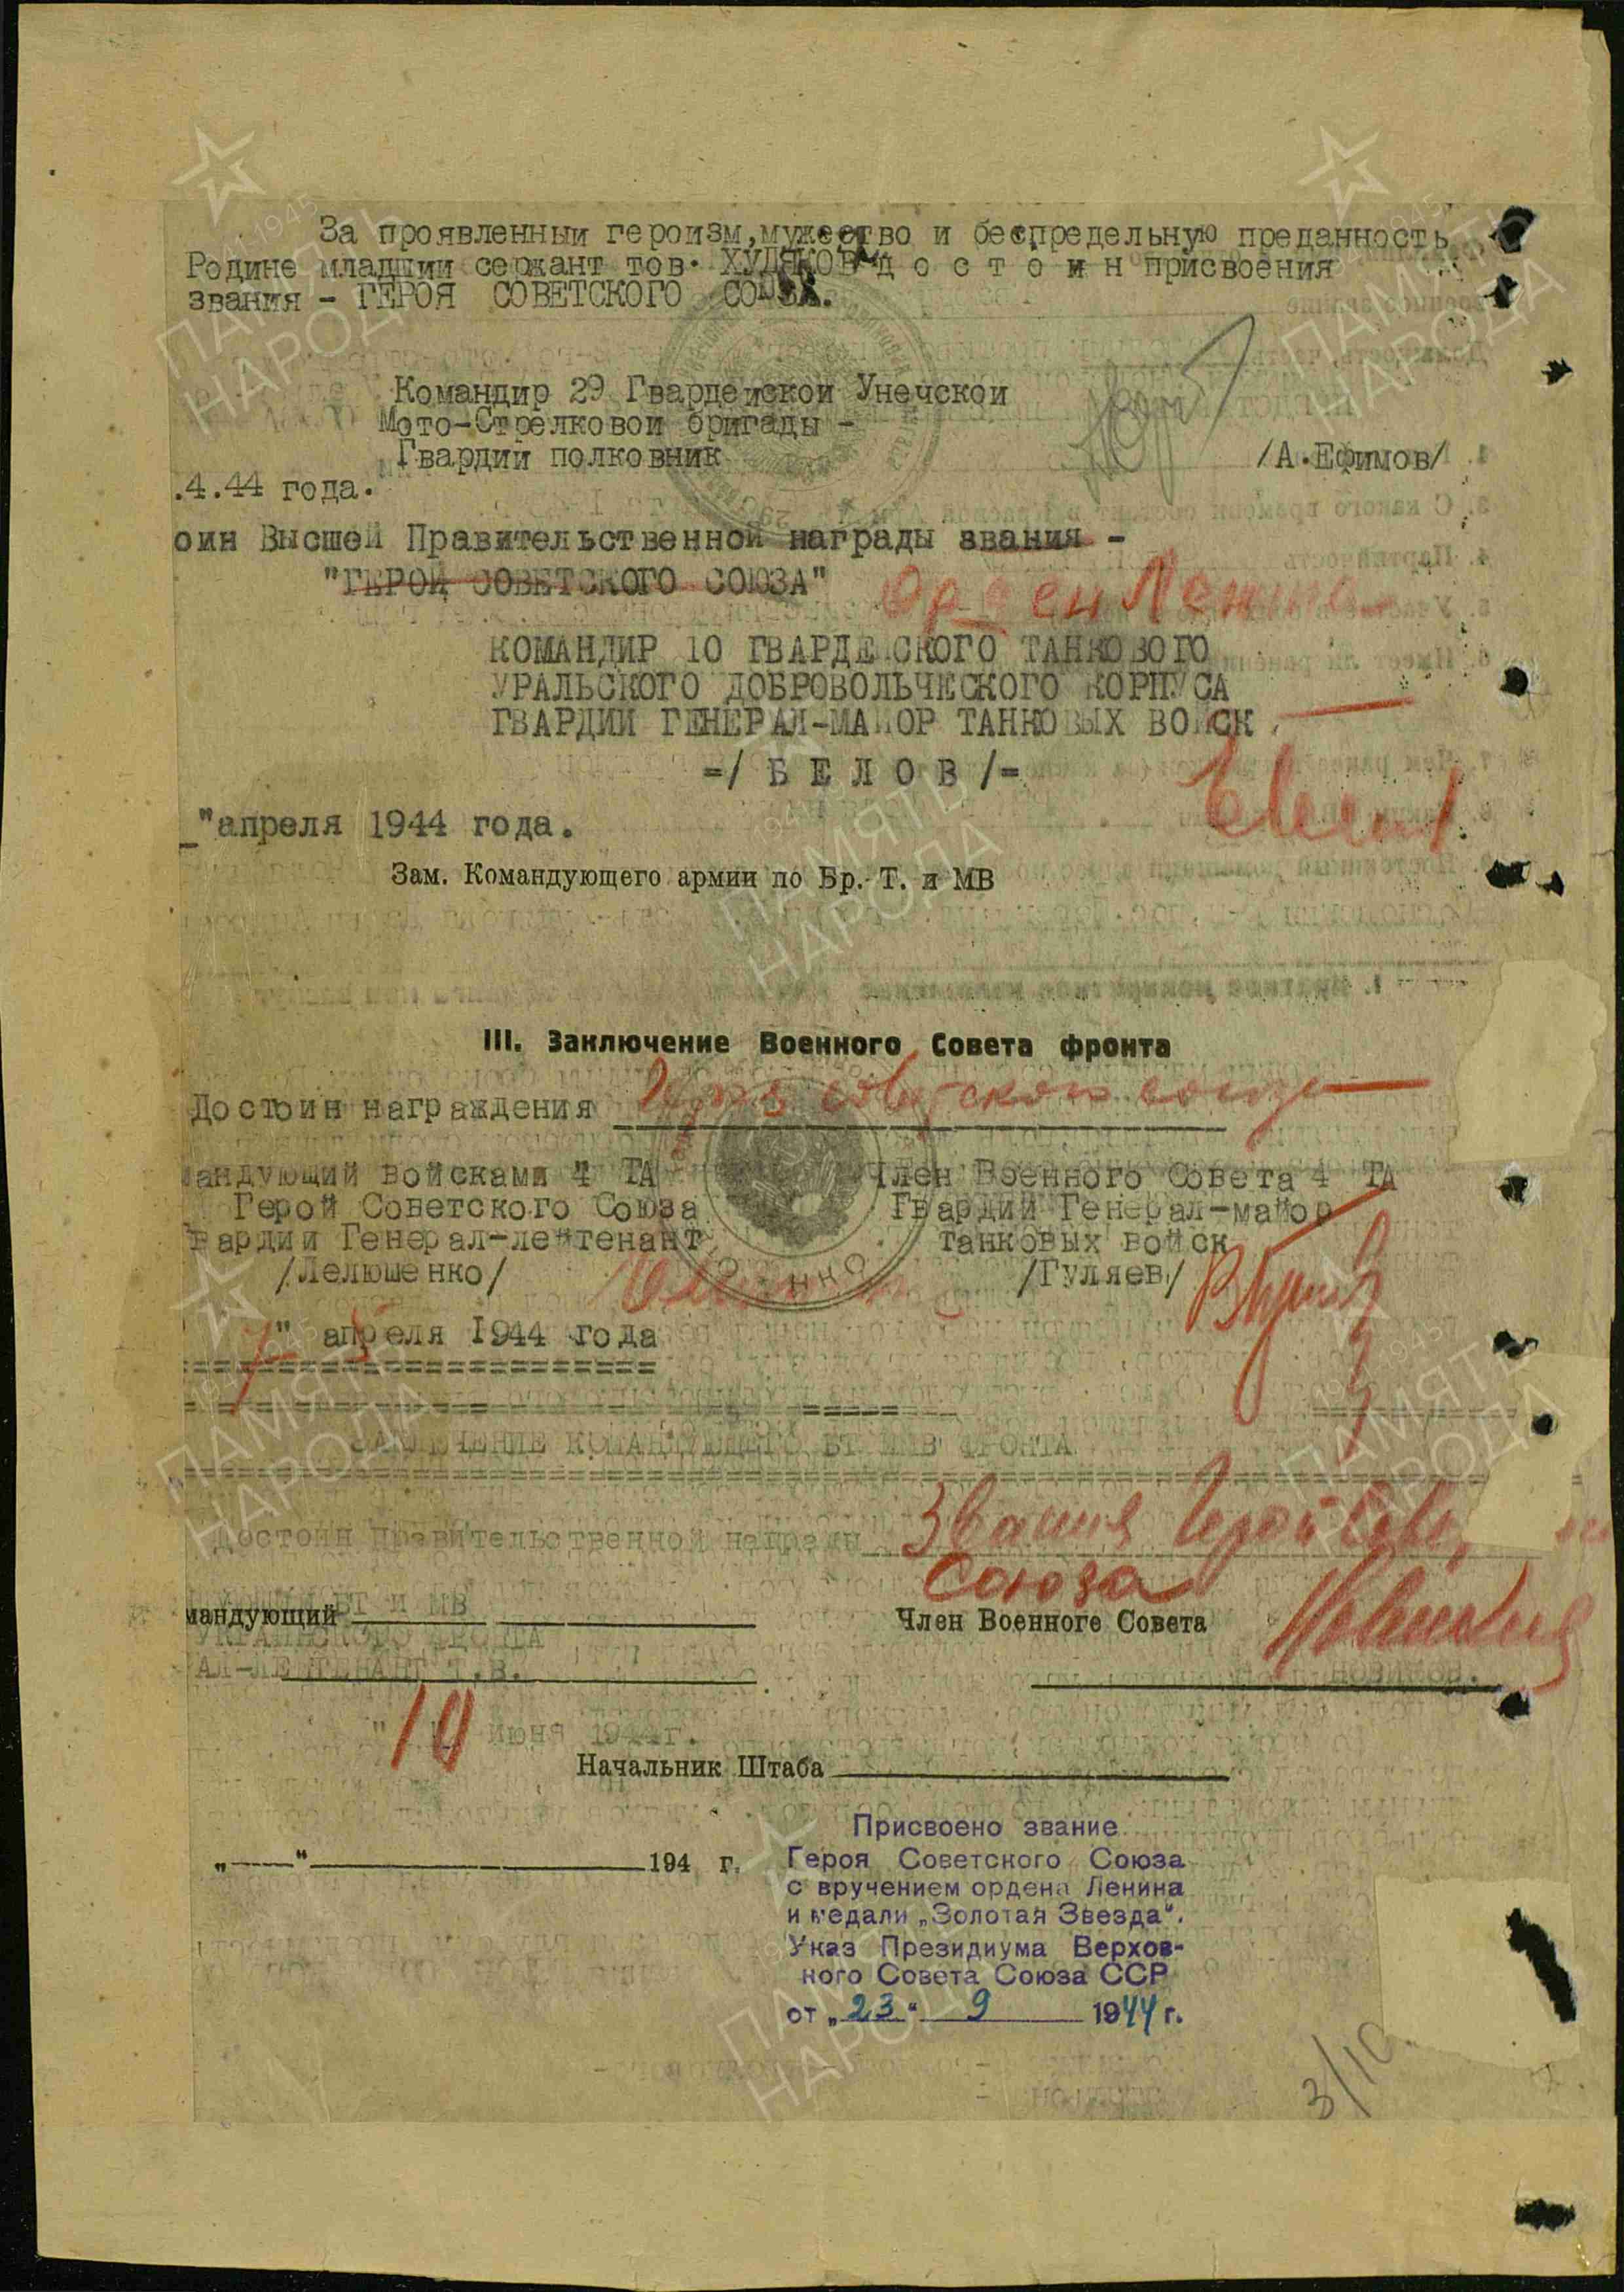 За проявленный героизм, мужество и беспредельную преданность
Родине младший сержант тов. ХУДЯКОВ д о с т о и н присвоения
звания - ГЕРОЯ СОВЕТСКОГО СОЮЗА.
Командир 29 Гвардейской Унечской
Мото-Стрелковой бригады -
Гвардии полковник
/А.Ефимов/
.4.44 года.
оин Высшей Правительственной награды звания -
"ГЕРОЙ СОВЕТСКОГО СОЮЗА" Орден Ленина
КОМАНДИР 10 ГВАРДЕЙСКОГО ТАНКОВОГО
УРАЛЬСКОГО ДОБРОВОЛЬЧЕСКОГО КОРПУСА
ГВАРДИИ ГЕНЕРАЛ-МАЙОР ТАНКОВЫХ ВОЙСК
=/ Б Е Л О В /=
"апреля 1944 года.
Зам. Командующего армии по Бр.-Т. и МВ
III. Заключение Военного Совета фронта
Достоин награждения Героя советского союза
мандующий войсками 4 ТА Член Военного Совета 4 ТА
Герой Советского Союза Гвардии Генерал-майор
вардии Генерал-лейтенант танковых войск
/Лелюшенко/ /Гуляев/
7" апреля 1944 года
ЗАКЛЮЧЕНИЕ КОМАНДУЮЩЕГО БТ И МВ ФРОНТА
Достоин правительственной награды Звания Герой
Союза
БТ и МВ
мандующий Член Военного Совета
УКРАИНСКОГО ФРОНТА
АЛ-ЛЕЙТЕНАНТ Т.В. НОВИКОВ.
" 10 июня 1944 г.
Начальник Штаба
„ “ 194 г.
Присвоено звание
Героя Советского Союза
с вручением ордена Ленина
и медали „Золотая Звезда".
Указ Президиума Верхов-
ного Совета Союза ССР
от „23" 9 1944 г.
3/10.
ПАМЯТЬ
НАРОДА
1941-1945